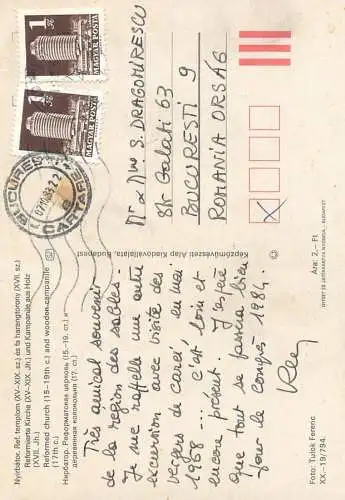 Nyírbátor. Ref. templom (XV–XIX. sz.) és fa harangtorony (XVII. sz.)
Reformierte Kirche (XV–XIX. Jh.) und Kampanile aus Holz
(XVII. Jh.)
Reformed church (15–19th c.) and wooden campanile
(17th c.)
Нирбатор. Реформатская церковь (15.–19. ст.) и
деревянная колокольня (17. ст.)
Très amical souvenir
de la région des sables.
Je me rappelle une autre
excursion avec visite des
vergers de Carei, en mai
1968 ... c'est loin et
encore présent. J'espère
que tout se passera bien
pour le congrès 1984.
Képzőművészeti Alap Kiadóvállalata, Budapest
1 Ft
MAGYAR POSTA
1 Ft
MAGYAR POSTA
BUCUREȘTI
CARTARE
Mr & Mme S. DRAGOMIRESCU
Str Galati 63
BUCURESTI 9
ROMANIA ORSÁG
Ára: 2,– Ft
Foto: Tulok Ferenc
XX–19/794.